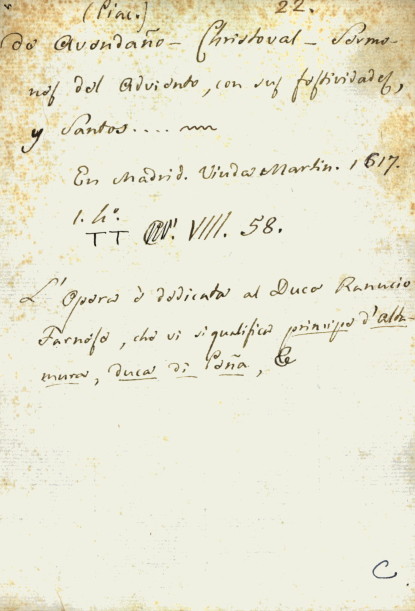 (Piac.) 22.
de Avendaño - Christoval - Sermo-
nes del Adviento, con sus festividades,
y Santos....
En Madrid. Viuda Martin. 1617.
1. 4º.
TT VIII. 58.
L'Opera è dedicata al Duca Ranucio
Farnese, che vi si qualifica principe d'alta-
mura, duca di
C.